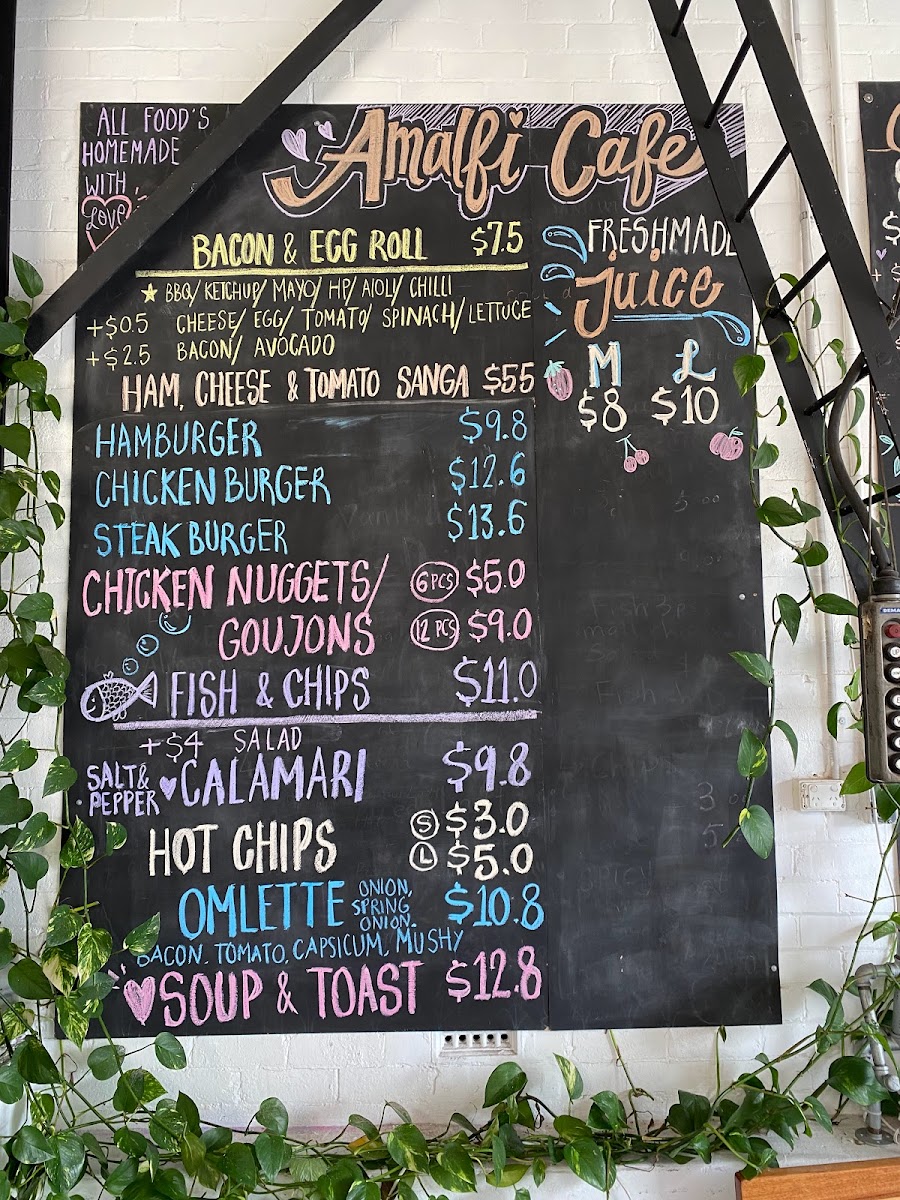 ALL FOOD'S
HOMEMADE
WITH
Love
Amalfi Cafe
BACON & EGG ROLL $7.5
★ BBQ/ KETCHUP/ MAYO/ HP/ AIOLI/ CHILLI
+$0.5 CHEESE/ EGG/ TOMATO/ SPINACH/ LETTUCE
+$2.5 BACON/ AVOCADO
HAM, CHEESE & TOMATO SANGA $5.5
HAMBURGER $9.8
CHICKEN BURGER $12.6
STEAK BURGER $13.6
CHICKEN NUGGETS/ 6 PCS $5.0
GOUJONS 12 PCS $9.0
FISH & CHIPS $11.0
+$4 SALAD
SALT & PEPPER CALAMARI $9.8
HOT CHIPS S $3.0
L $5.0
OMLETTE ONION, SPRING ONION. $10.8
BACON. TOMATO, CAPSICUM, MUSHY
SOUP & TOAST $12.8
FRESHMADE
Juice
M L
$8 $10